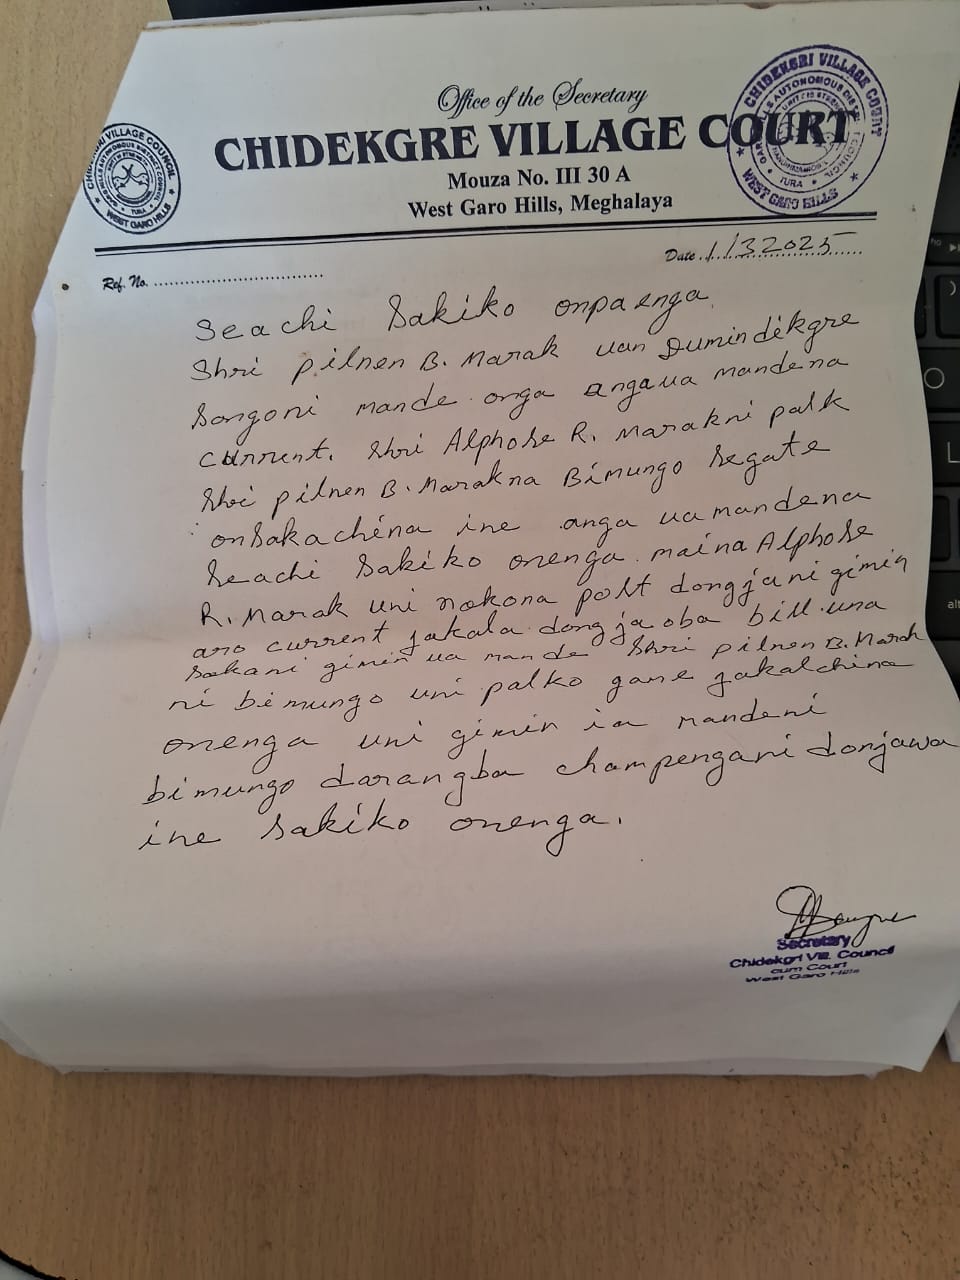 Office of the Secretary
CHIDEKGRE VILLAGE COURT
Mouza No. III 30 A
West Garo Hills, Meghalaya
VILLAGE COUNCIL
TURA
WEST GARO HILLS
CHIDEKGRI VILLAGE COURT
TURA
WEST GARO HILLS
Ref. No. ..............................
Date 1/3 2025
Seachi Sakiko onpaenga
Shri pilnen B. Marak uan Dumindikgre
Songoni mande onga angaua mandena
current. Shri Alphose R. Marakni palk
Shri pilnen B. Marakna Bimungo Segate
onsakachina ine anga uamandena
Seachi Sakiko onenga maina Alphose
R. Marak uni nokona post dongjani gimin
aro current jakala dongjaoba bill una
sokani gimin ua mande Shri pilnen B. Marak
ni bimungo uni palko gane jakalchina
onenga uni gimin ia mandeni
bimungo darangba champengani donjawa
ine Sakiko onenga.
Secretary
Chidekgri Vill. Council
cum Court
West Garo Hills